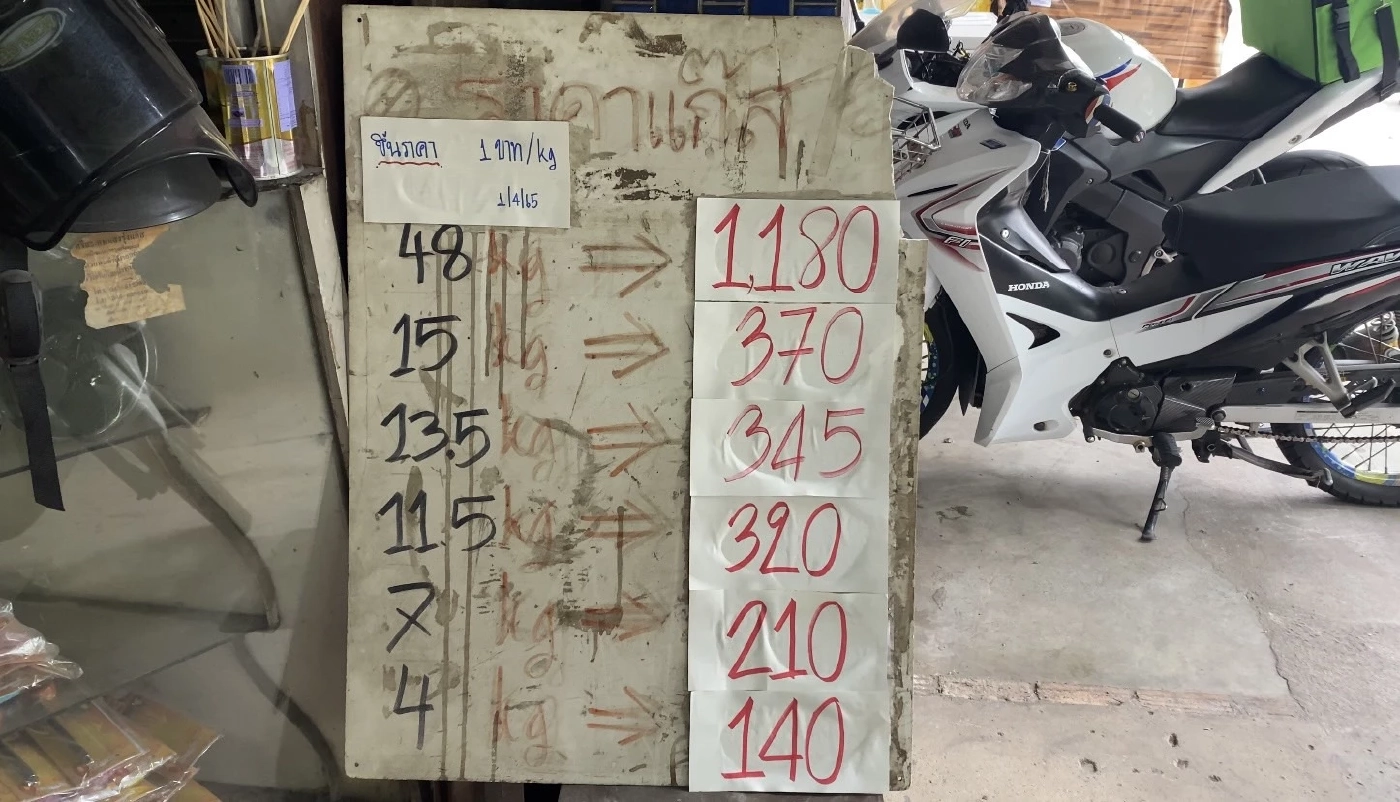 ราคาแก๊ส
ขึ้นราคา 1 บาท/kg
1/4/65
48 kg ⇒ 1,180
15 kg ⇒ 370
13.5 kg ⇒ 345
11.5 kg ⇒ 320
7 kg ⇒ 210
4 kg ⇒ 140
HONDA
WAV